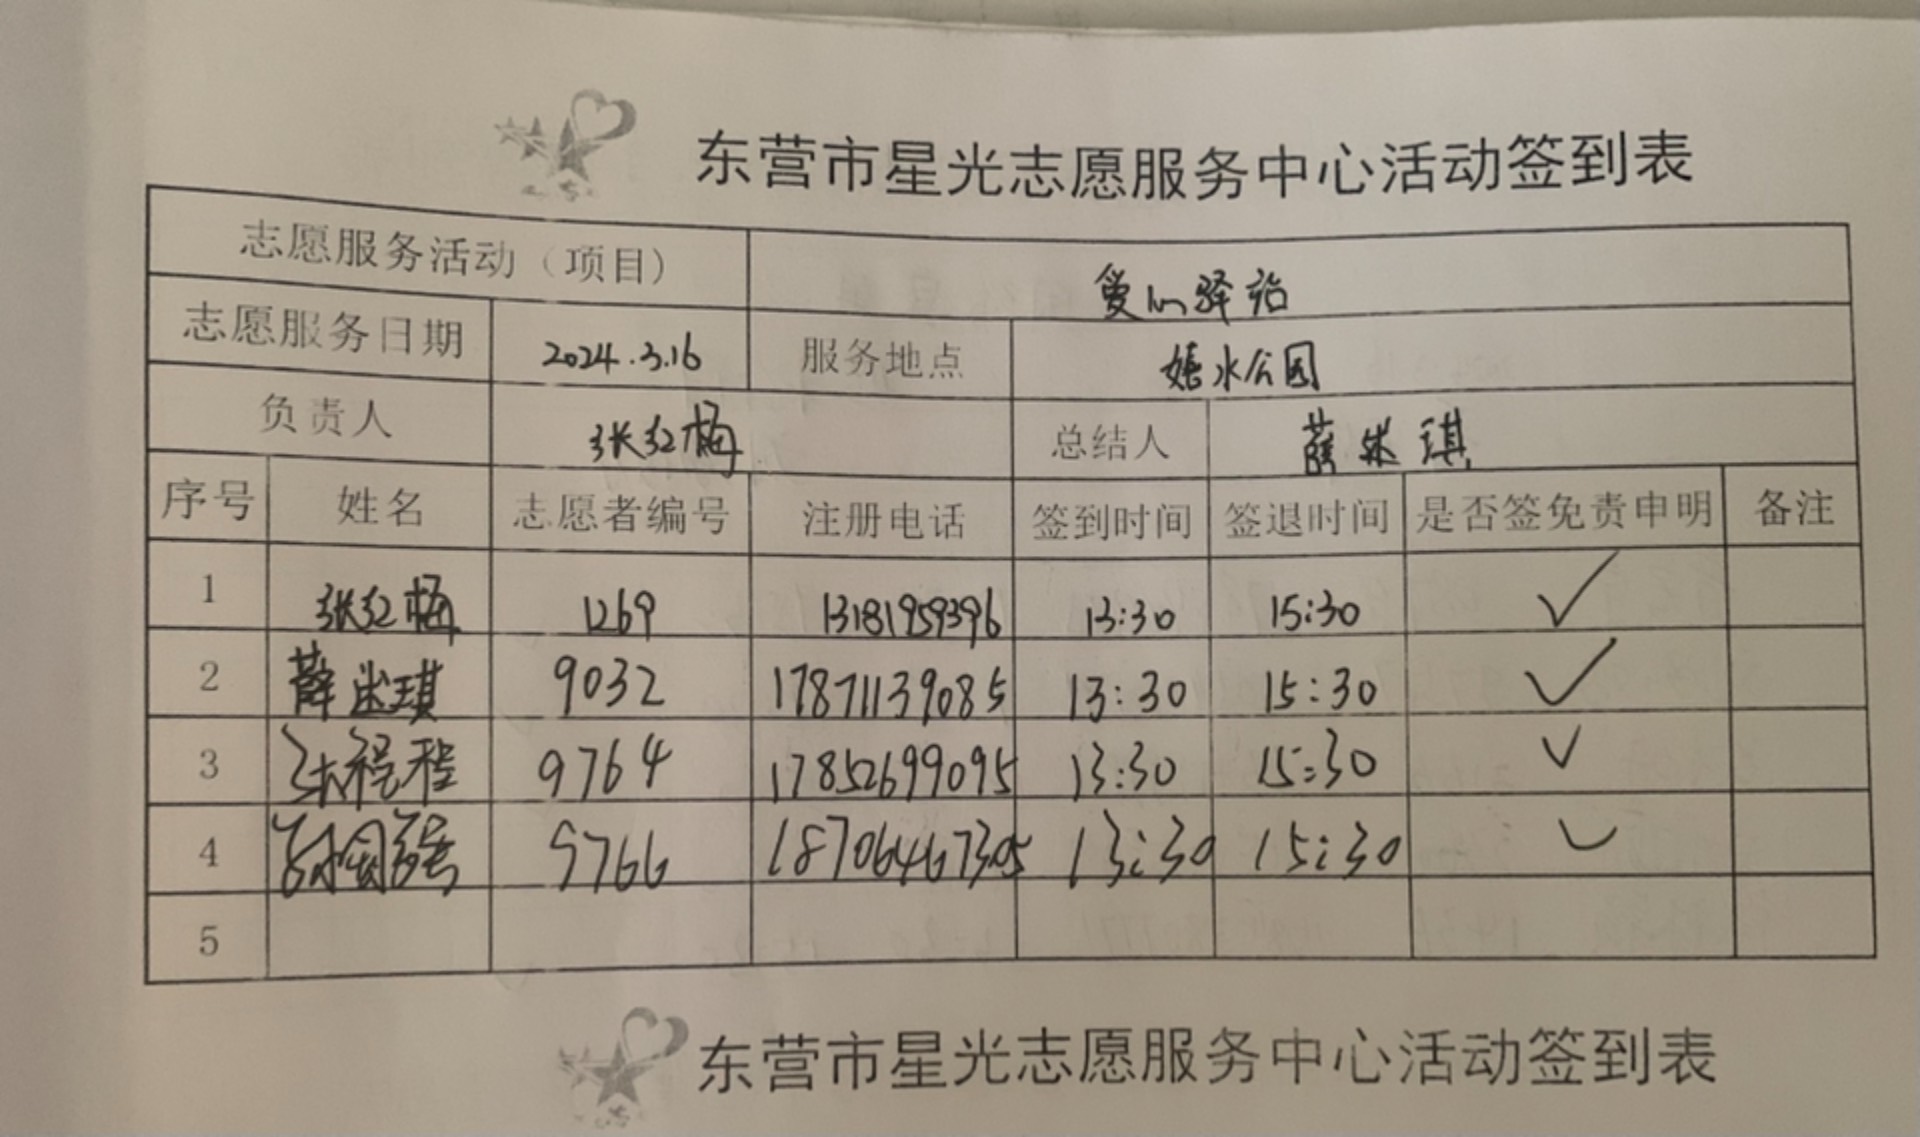 东营市星光志愿服务中心活动签到表
志愿服务活动（项目） 爱心驿站
志愿服务日期 2024.3.16 服务地点 嬉水公园
负责人 张红梅 总结人 薛 琪
序号 姓名 志愿者编号 注册电话 签到时间 签退时间 是否签免责申明 备注
1 张红梅 1269 13181959396 13:30 15:30 ✓
2 薛 琪 9032 17871139085 13:30 15:30 ✓
3 程程 9764 17852699095 13:30 15:30 ✓
4 9766 18706467305 13:30 15:30 ✓
5
东营市星光志愿服务中心活动签到表